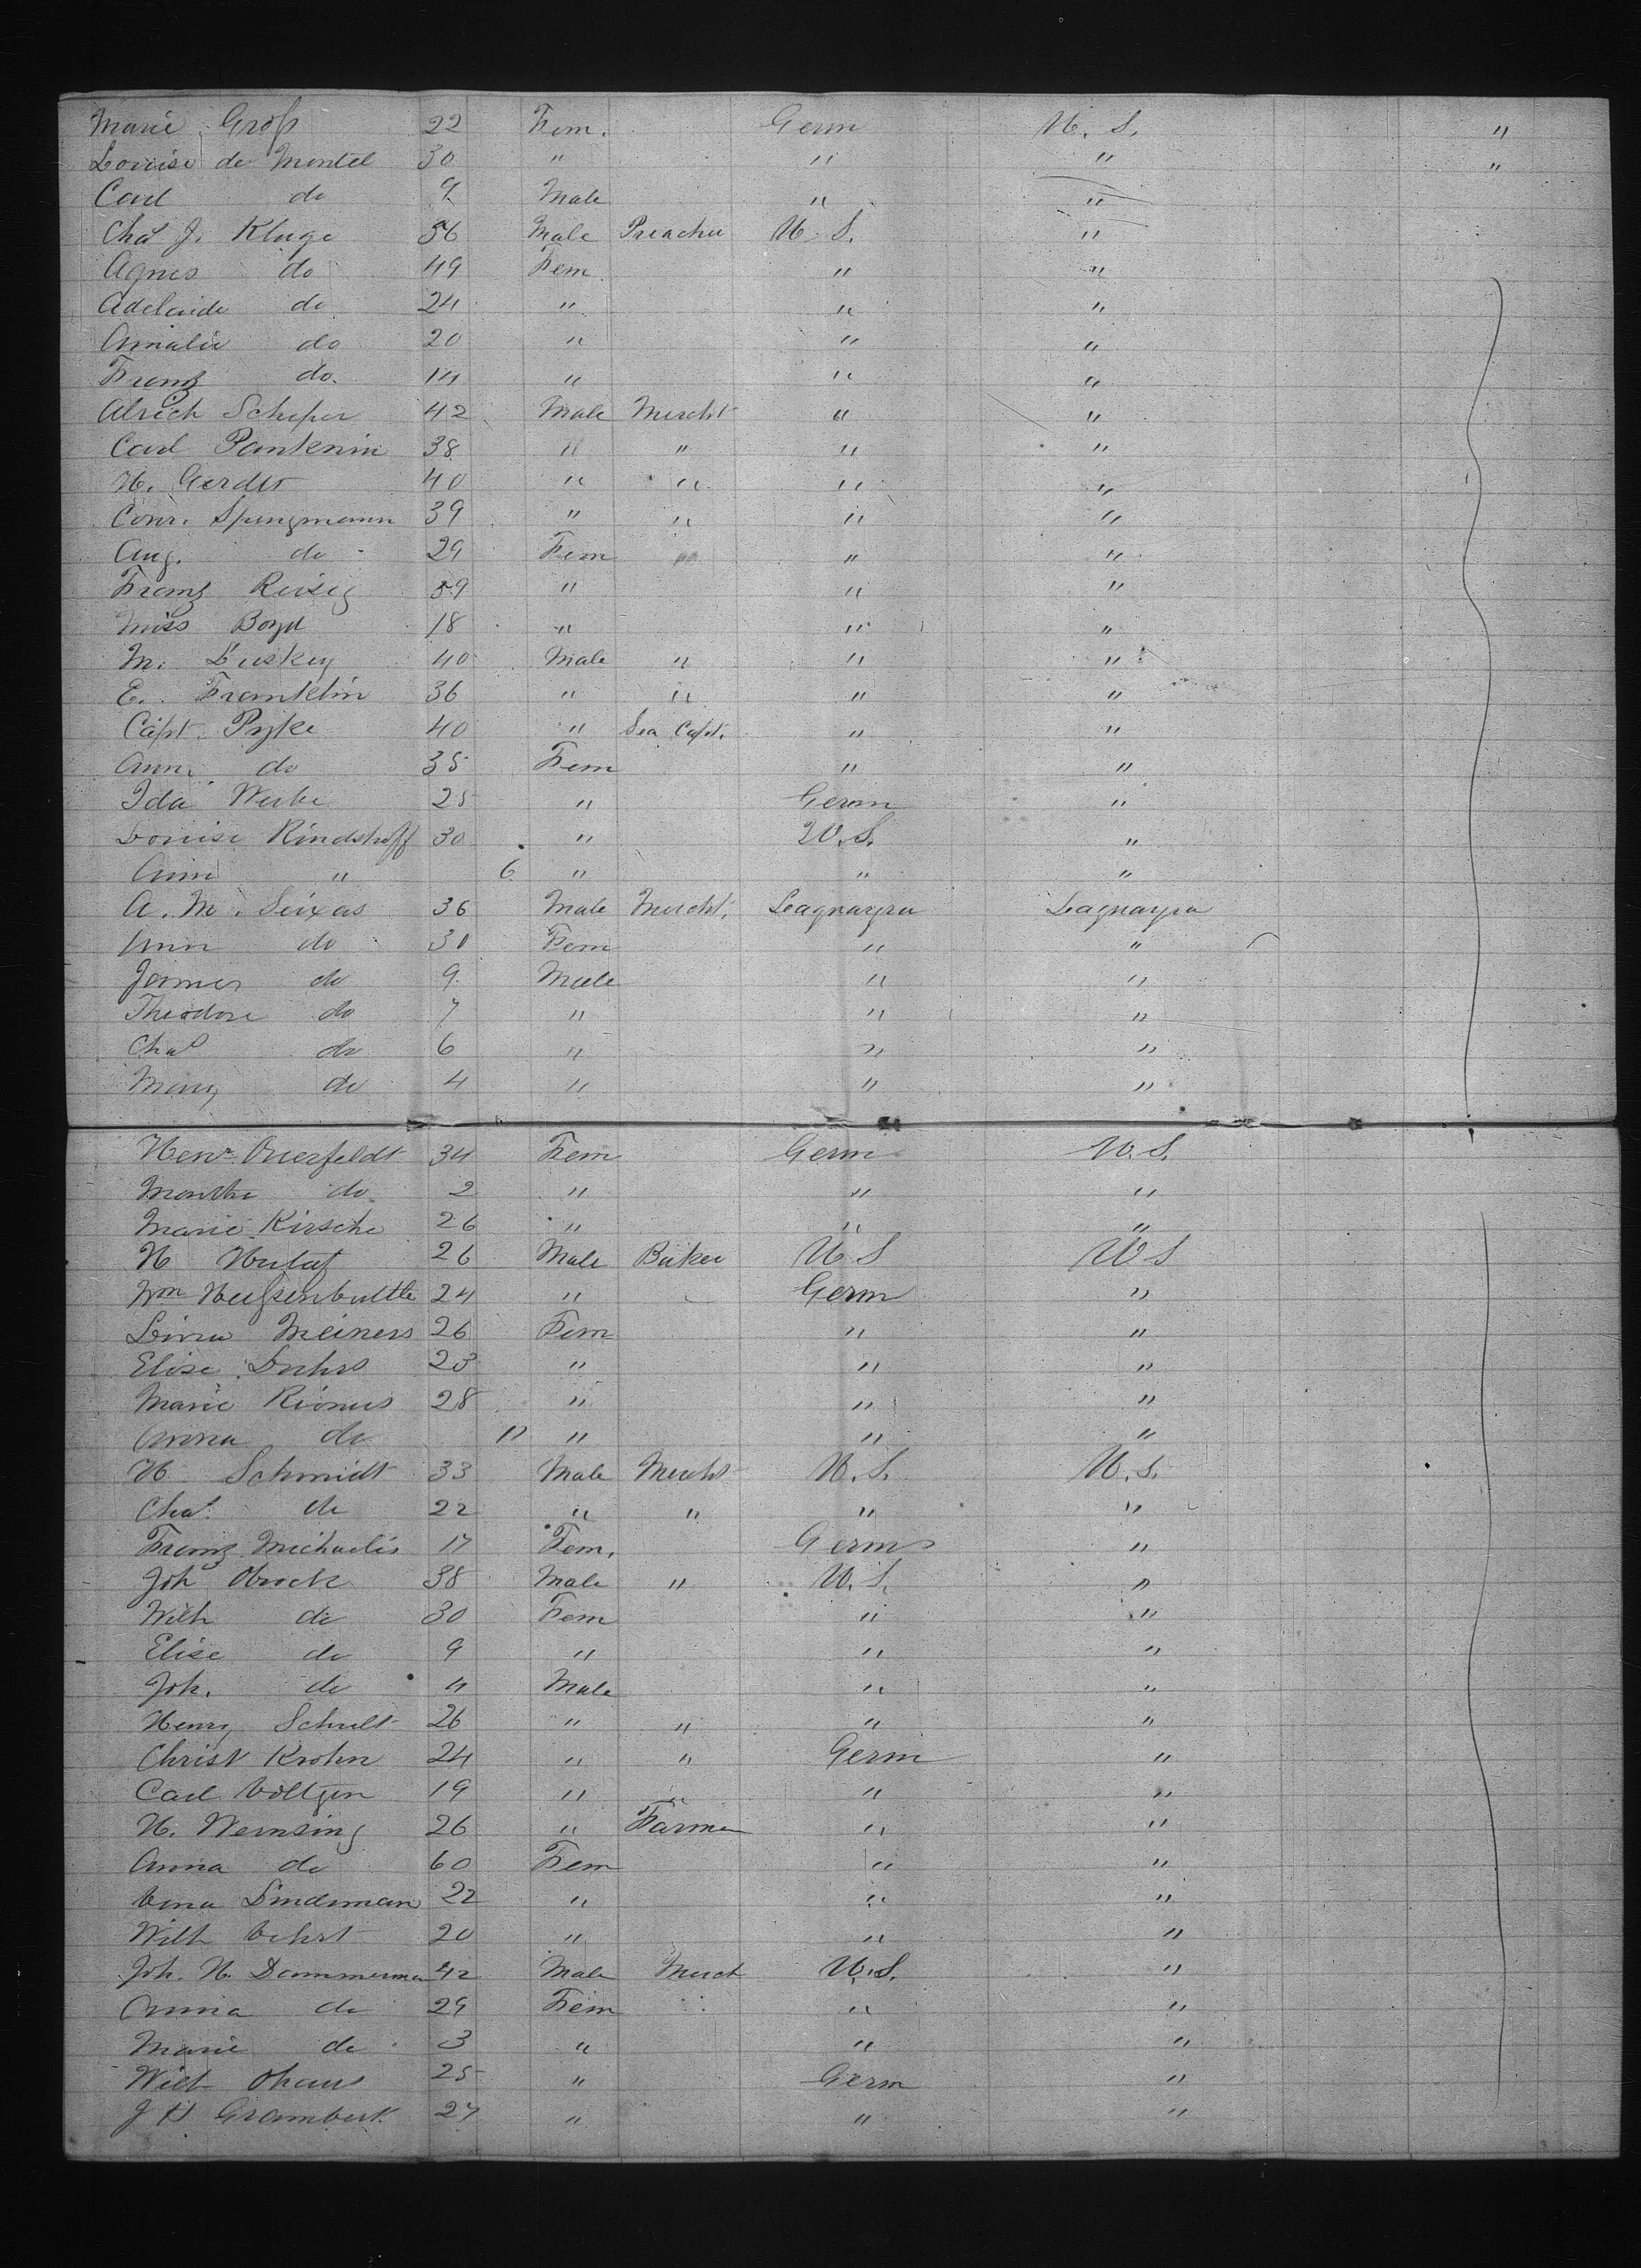 Marie Groß 22 Fem. Germ U. S. "
Louise de Montel 30 " " " "
Carl do 9 Male " "
Chas J. Kluge 56 Male Preacher U. S. "
Agnes do 49 Fem " "
Adelaide do 24 " " "
Amalie do 20 " " "
Franz do. 14 " " "
Alrich Scheper 42 Male Mercht " "
Carl Pantenin 38 " " " "
H. Gerdes 40 " " " "
Conr. Spengmann 39 " " " "
Aug. do 29 Fem " "
Franz Reisig 59 " " "
Miss Boyd 18 " " "
M. Luskey 40 Male " " "
E. Franklin 36 " " " "
Capt. Pyke 40 " Sea Capt. " "
Ann do 35 Fem " "
Ida Werbe 25 " Germ "
Louise Rindskoff 30 " U.S. "
Ann " 6 " " "
A. M. Seixas 36 Male Mercht. Laguayra Laguayra
Ann do 30 Fem " "
James do 9 Male " "
Theodore do 7 " " "
Chas do 6 " " "
Mary do 4 " " "
Henr Querfeldt 34 Fem Germ U.S.
Martha do 2 " " "
Marie Kirsche 26 " " "
H 26 Male Baker U S U S
Wm Heißenbuttle 24 " Germ "
Lina Meiners 26 Fem " "
Elise Luhrs 23 " " "
Marie Rionus 28 " " "
Anna do 11 " " "
H Schmidt 33 Male Mercht U. S. U. S.
Chas. do 22 " " " "
Franz Michaelis 17 Fem. Germ "
Joh Obrock 38 Male " U. S. "
Wilh do 30 Fem " "
Elise do 9 " " "
Joh. do 4 Male " "
Henry Schult 26 " " " "
Christ Krohn 24 " " Germ "
Carl Voltzen 19 " " " "
H. Wemsing 26 " Farmer " "
Anna do 60 Fem " "
Vena Lindeman 22 " " "
Wilh Vehrt 20 " " "
Joh. H. Dammerman 42 Male Merch U.S. "
Anna do 29 Fem " "
Marie do 3 " " "
Wilh Ohaus 25 " Germ "
J H Grambert 27 " " "